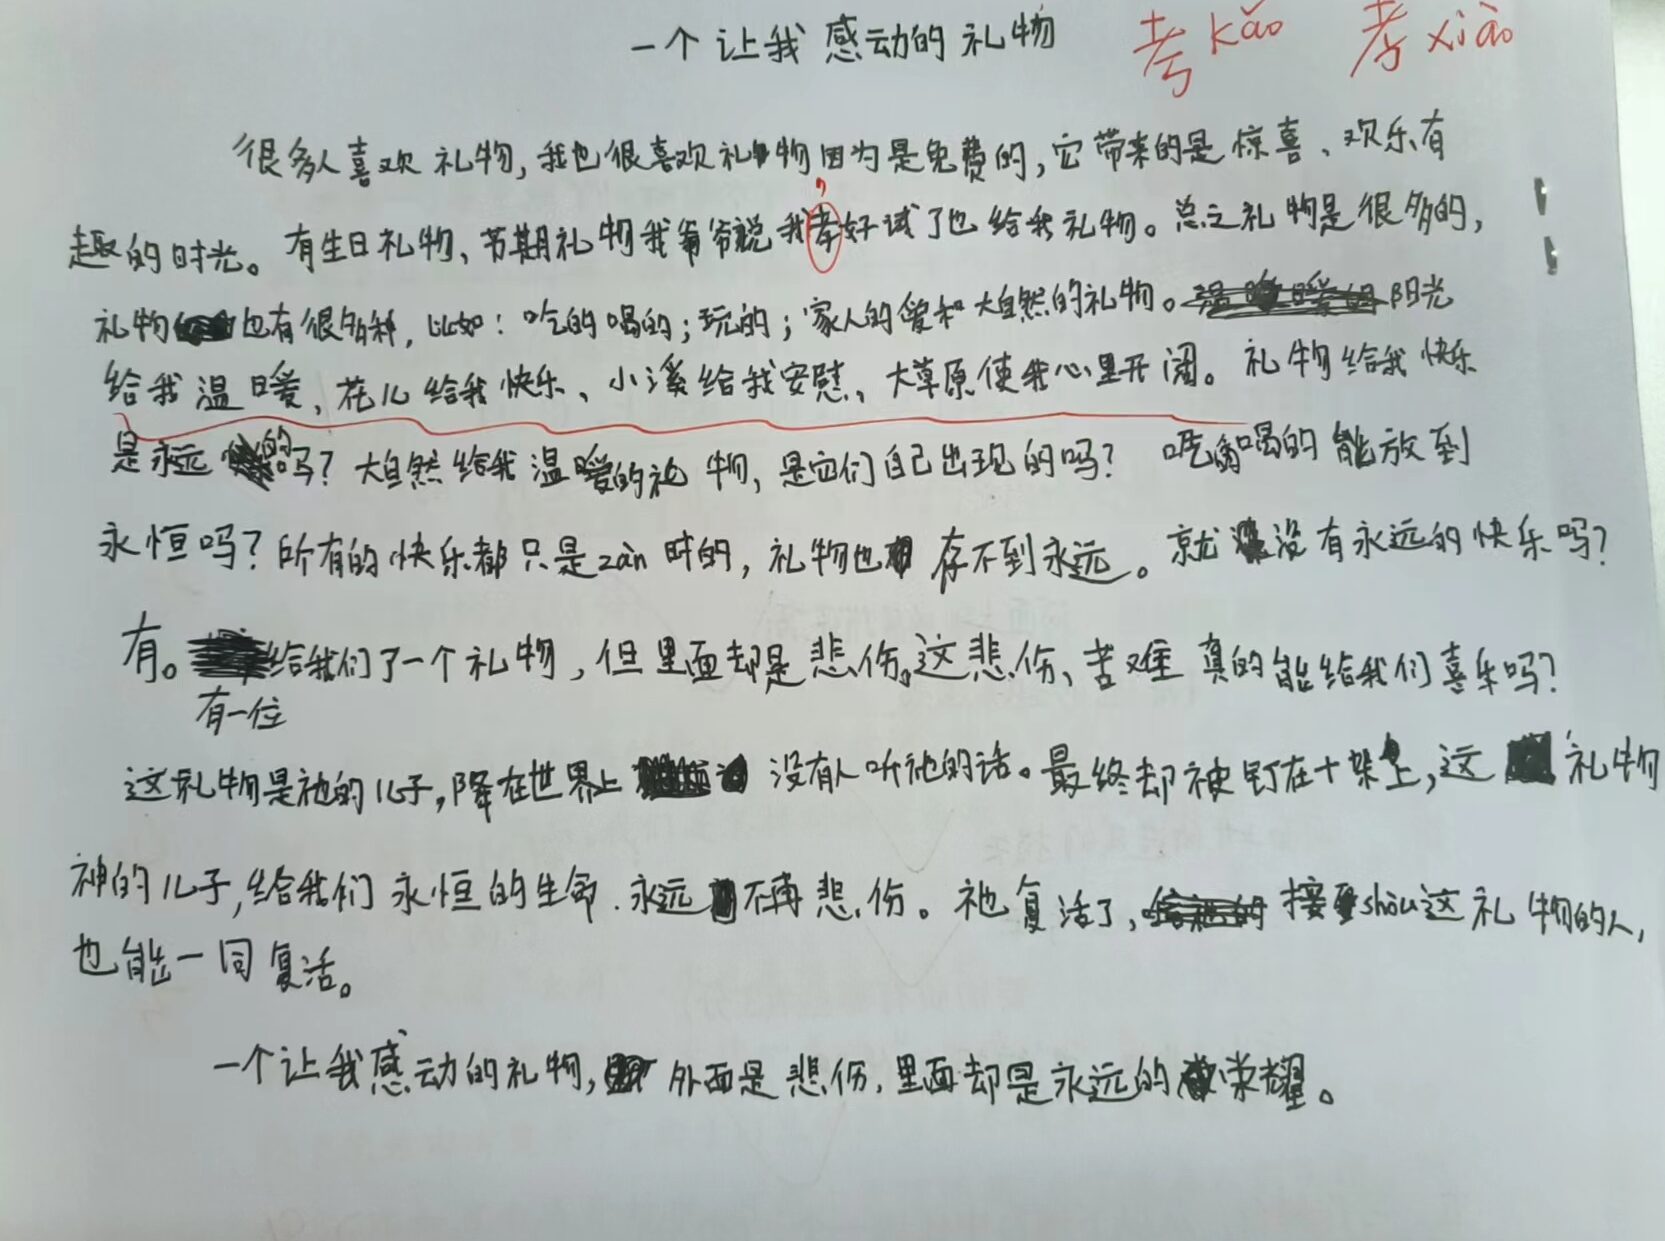 一个让我感动的礼物 考 kǎo 孝 xiào
很多人喜欢礼物，我也很喜欢礼物因为是免费的，它带来的是惊喜、欢乐有
趣的时光。有生日礼物、节期礼物我爷爷说，我孝好试了也给我礼物。总之礼物是很多的，
礼物也有很多种，比如：吃的喝的；玩的；家人的爱和大自然的礼物。阳光
给我温暖，花儿给我快乐、小溪给我安慰、大草原使我心里开阔。礼物给我快乐
是永远的吗？大自然给我温暖的礼物，是它们自己出现的吗？吃的喝的能放到
永恒吗？所有的快乐都只是zàn时的，礼物也存不到永远。就没有永远的快乐吗？
有。给我们了一个礼物，但里面却是悲伤。这悲伤、苦难真的能给我们喜乐吗？
有一位
这礼物是祂的儿子，降在世界上没有人听祂的话。最终却被钉在十架上，这礼物
神的儿子，给我们永恒的生命.永远不再悲伤。祂复活了，接shòu这礼物的人，
也能一同复活。
一个让我感动的礼物，外面是悲伤，里面却是永远的荣耀。